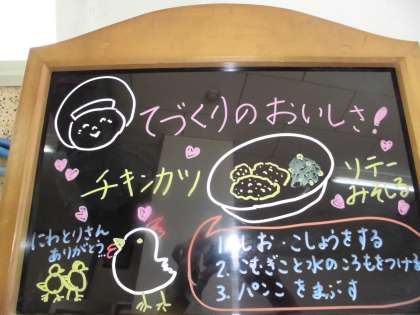 てづくりのおいしさ!
チキンカツ
ソテー
みそしる
にわとりさん
ありがとう
1. しお・こしょうをする
2. こむぎこと水のころもをつける
3. パンこをまぶす